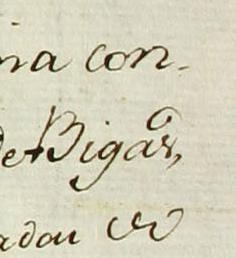 na con-
de Bigas,
adou